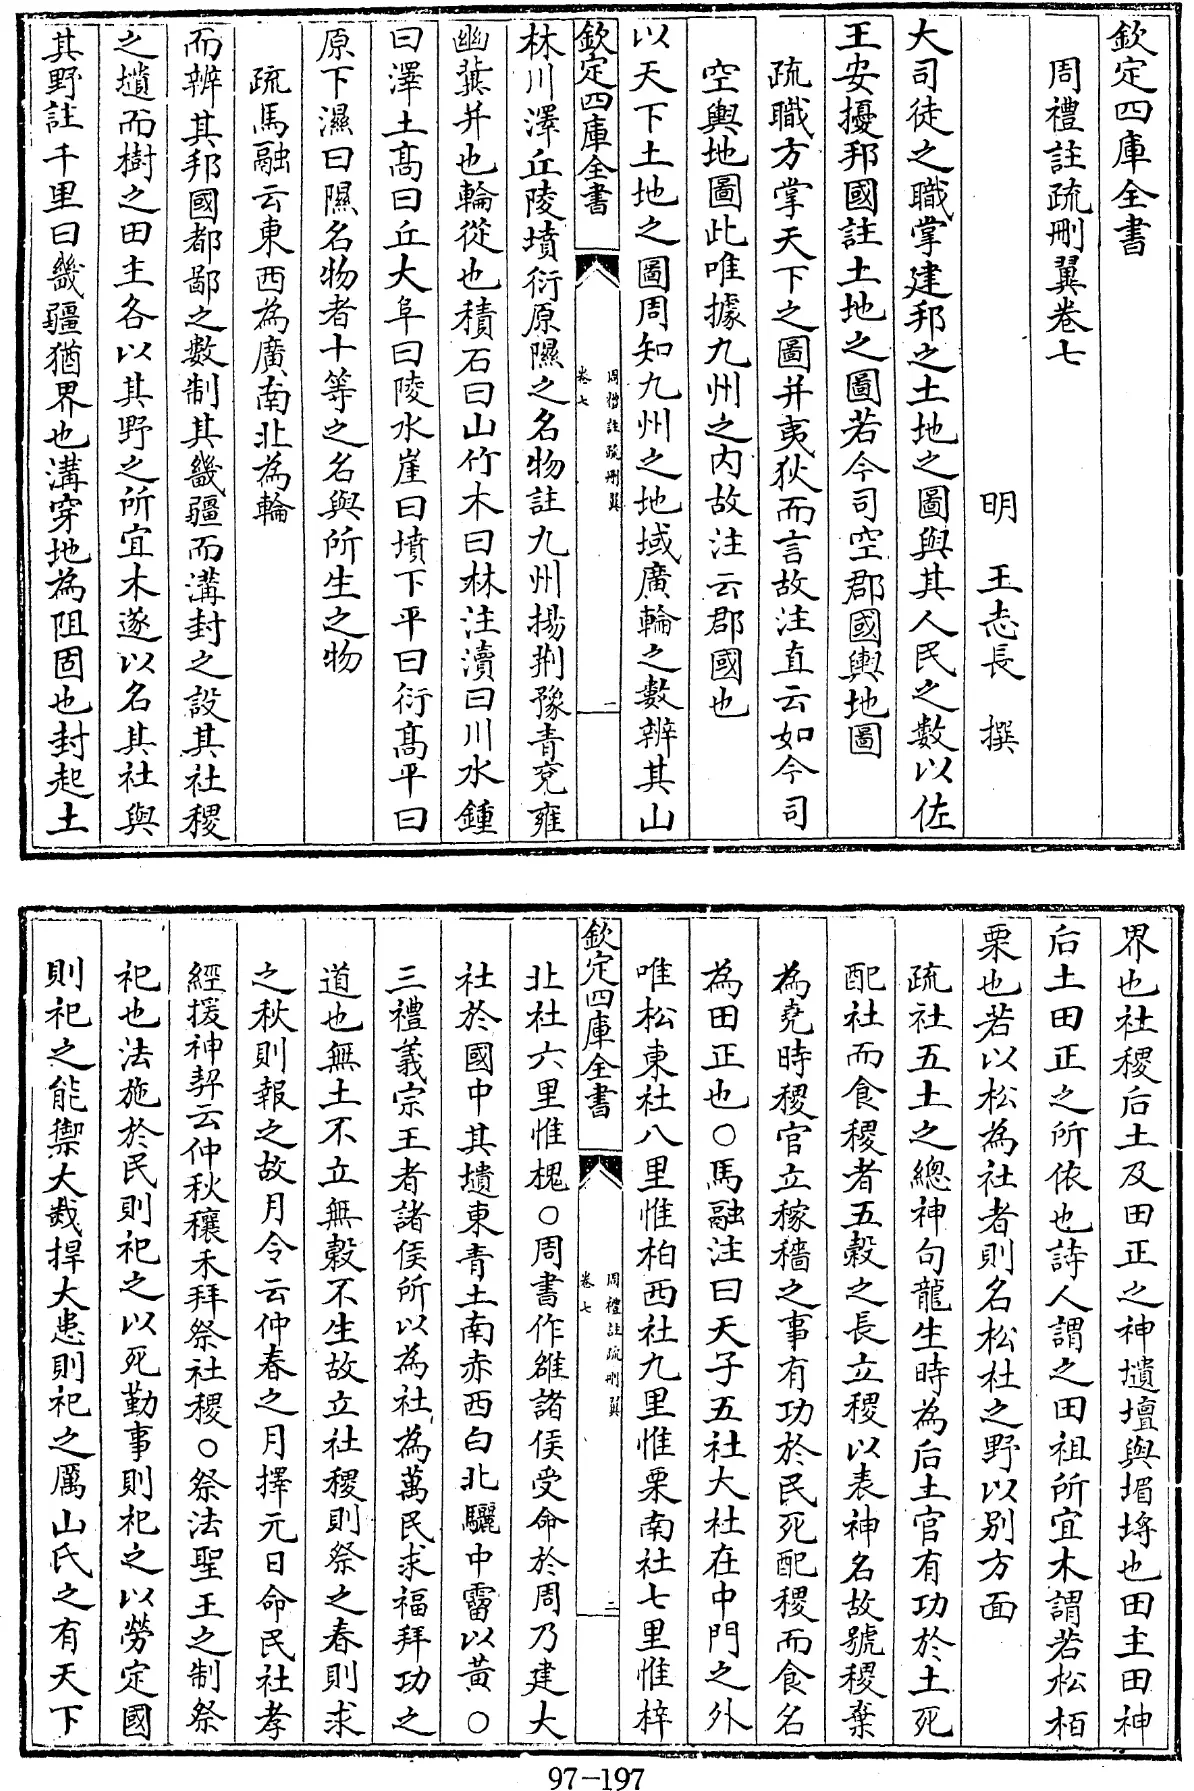 欽定四庫全書
周禮註疏刪翼卷七
明 王志長 撰
大司徒之職掌建邦之土地之圖與其人民之數以佐
王安擾邦國註土地之圖若今司空郡國輿地圖
疏職方掌天下之圖并夷狄而言故注直云如今司
空輿地圖此唯據九州之内故注云郡國也
以天下土地之圖周知九州之地域廣輪之數辨其山
欽定四庫全書
周禮註疏刪翼
卷七
一
林川澤丘陵墳衍原隰之名物註九州揚荆豫青兖雍
幽冀并也輪從也積石曰山竹木曰林注瀆曰川水鍾
曰澤土髙曰丘大阜曰陵水崖曰墳下平曰衍髙平曰
原下濕曰隰名物者十等之名與所生之物
疏馬融云東西為廣南北為輪
而辨其邦國都鄙之數制其畿疆而溝封之設其社稷
之壝而樹之田主各以其野之所宜木遂以名其社與
其野註千里曰畿疆猶界也溝穿地為阻固也封起土
界也社稷后土及田正之神壝壇與堳埓也田主田神
后土田正之所依也詩人謂之田祖所宜木謂若松栢
栗也若以松為社者則名松社之野以别方面
疏社五土之總神句龍生時為后土官有功於土死
配社而食稷者五穀之長立稷以表神名故號稷棄
為堯時稷官立稼穡之事有功於民死配稷而食名
為田正也○馬融注曰天子五社大社在中門之外
唯松東社八里惟柏西社九里惟栗南社七里惟梓
欽定四庫全書
周禮註疏刪翼
卷七
二
北社六里惟槐○周書作雒諸侯受命於周乃建大
社於國中其壝東青土南赤西白北驪中霤以黄○
三禮義宗王者諸侯所以為社為萬民求福拜功之
道也無土不立無穀不生故立社稷則祭之春則求
之秋則報之故月令云仲春之月擇元日命民社孝
經援神契云仲秋穰禾拜祭社稷○祭法聖王之制祭
祀也法施於民則祀之以死勤事則祀之以勞定國
則祀之能禦大烖捍大患則祀之厲山氏之有天下
97-197